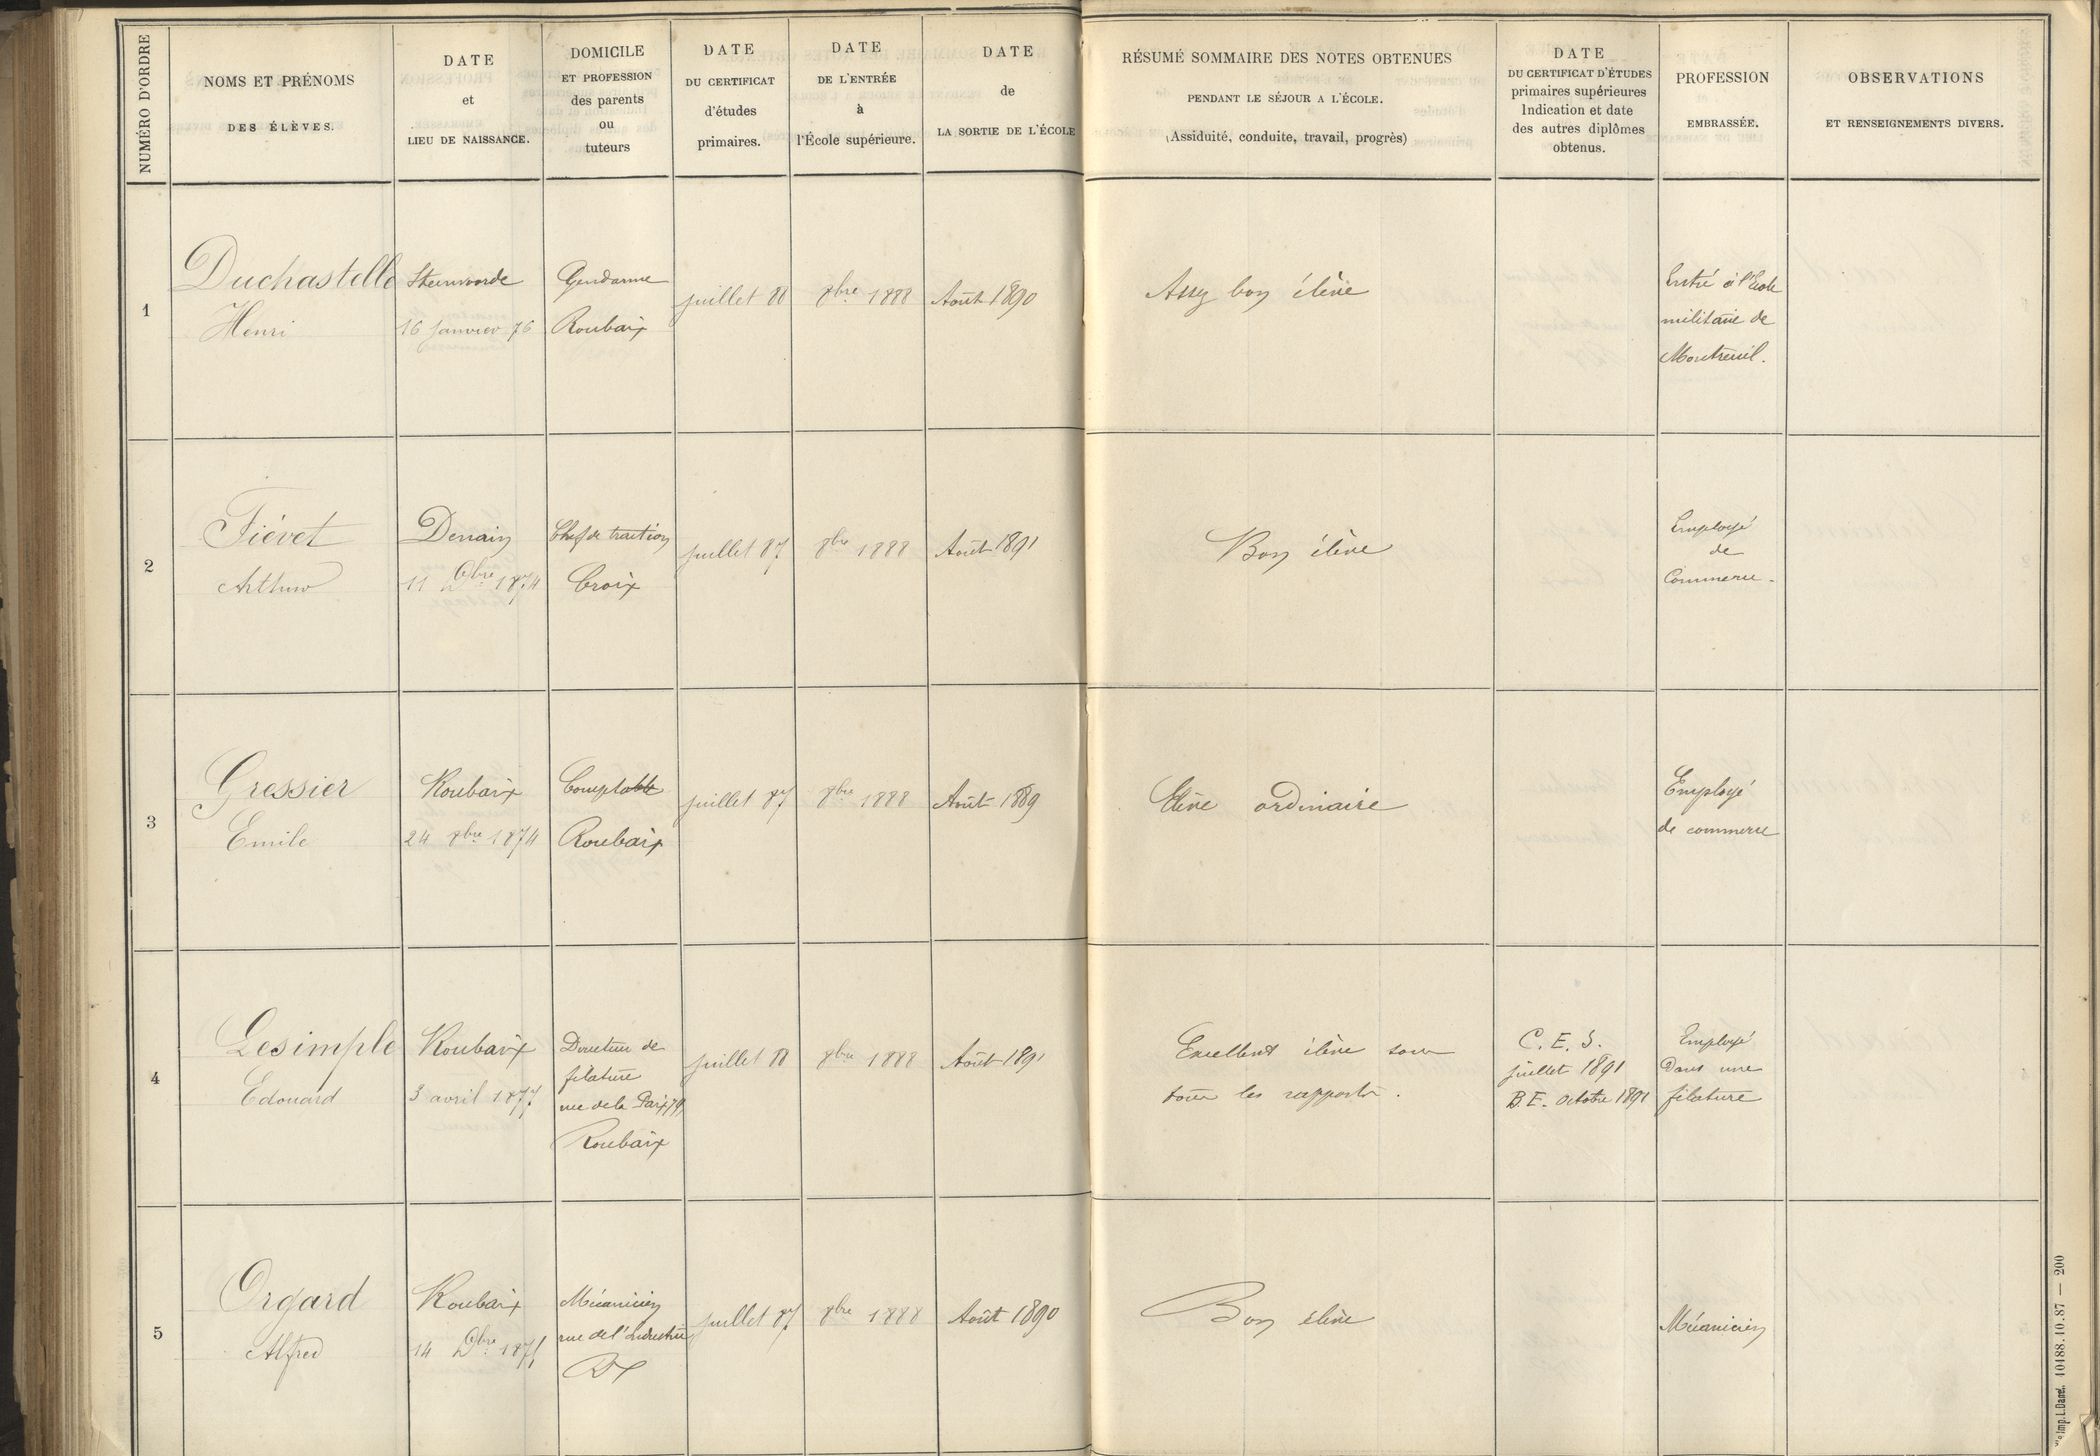 NUMÉRO D'ORDRE
NOMS ET PRÉNOMS
DES ÉLÈVES.
DATE
et
LIEU DE NAISSANCE.
DOMICILE
ET PROFESSION
des parents
ou
tuteurs
DATE
DU CERTIFICAT
d'études
primaires.
DATE
DE L'ENTRÉE
à
l'École supérieure.
DATE
de
LA SORTIE DE L'ÉCOLE
RÉSUMÉ SOMMAIRE DES NOTES OBTENUES
PENDANT LE SÉJOUR A L'ÉCOLE.
(Assiduité, conduite, travail, progrès)
DATE
DU CERTIFICAT D'ÉTUDES
primaires supérieures
Indication et date
des autres diplômes
obtenus.
PROFESSION
EMBRASSÉE.
OBSERVATIONS
ET RENSEIGNEMENTS DIVERS.
1
Duchastelle
Henri
Steenvorde
16 Janvier 76
Gendarme
Roubaix
juillet 88
8bre 1888
Août 1890
Assez bon élève
Entré à l'Ecole
militaire de
Montreuil.
2
Fiévet
Arthur
Denain
11 Xbre 1874
Chef de traction
Croix
juillet 87
8bre 1888
Août 1891
Bon élève
Employé
de
Commerce.
3
Gressier
Emile
Roubaix
24 8bre 1874
Comptable
Roubaix
juillet 87
8bre 1888
Août 1889
Elève ordinaire
Employé
de commerce
4
Lesimple
Edouard
Roubaix
3 avril 1877
Directeur de
filature
rue de la Paix 79
Roubaix
juillet 88
8bre 1888
Août 1891
Excellent élève sous
tous les rapports.
C. E. S.
juillet 1891
B.E. octobre 1891
Employé
dans une
filature
5
Orgard
Alfred
Roubaix
14 Xbre 1871
Mécanicien
rue de l'Industrie
Rx
juillet 87
8bre 1888
Août 1890
Bon élève
Mécanicien
Imp. L. Danel. 10488.10.87 — 200